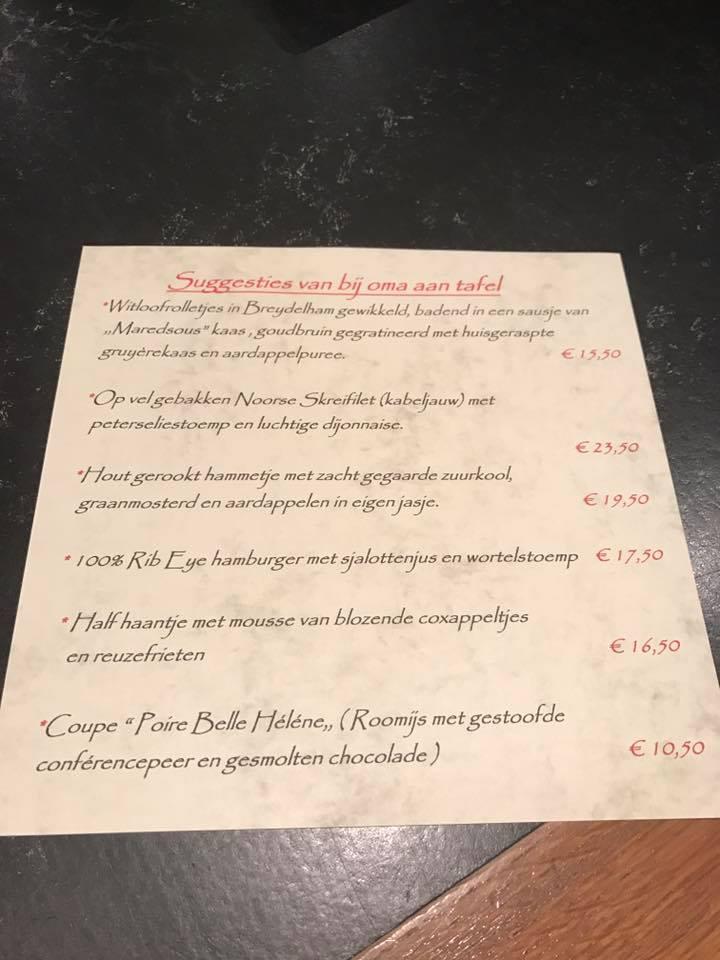 Suggesties van bij oma aan tafel
*Witloofrolletjes in Breydelham gewikkeld, badend in een sausje van
„Maredsous” kaas , goudbruin gegratineerd met huisgeraspte
gruyèrekaas en aardappelpuree. € 15,50
*Op vel gebakken Noorse Skreifilet (kabeljauw) met
peterseliestoemp en luchtige dijonnaise.
€ 23,50
*Hout gerookt hammetje met zacht gegaarde zuurkool,
graanmosterd en aardappelen in eigen jasje. € 19,50
* 100% Rib Eye hamburger met sjalottenjus en wortelstoemp € 17,50
* Half haantje met mousse van blozende coxappeltjes
en reuzefrieten € 16,50
*Coupe “ Poire Belle Héléne„ ( Roomijs met gestoofde
conférencepeer en gesmolten chocolade ) € 10,50